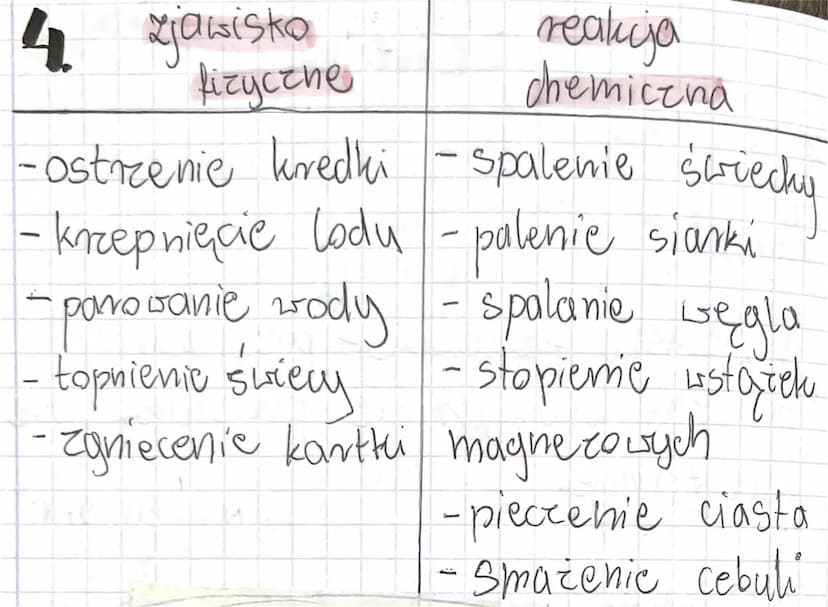 4.
zjawisko
fizyczne
- ostrzenie kredki
- krzepnięcie lodu
- parowanie wody
- topnienie świecy
- zgniecenie kartki
reakcja
chemiczna
- spalenie świecky
- palenie siarki
- spalanie węgla
- stopienie wstążek
magnezowych
- pieczenie ciasta
- smażenie cebuli